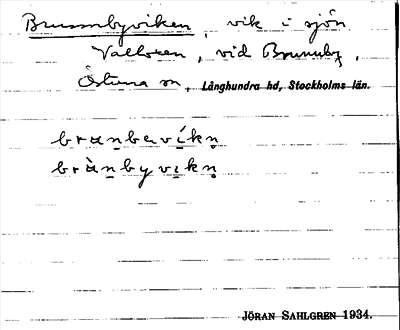 Brunnbyviken, vik i sjön
Valloxen, vid Brunnby,
Östuna sn, Långhundra hd, Stockholms län.
brȧṉbavíkṇ
brȧ̀ṉbyvi̱kṇ
JÖRAN SAHLGREN 1934.